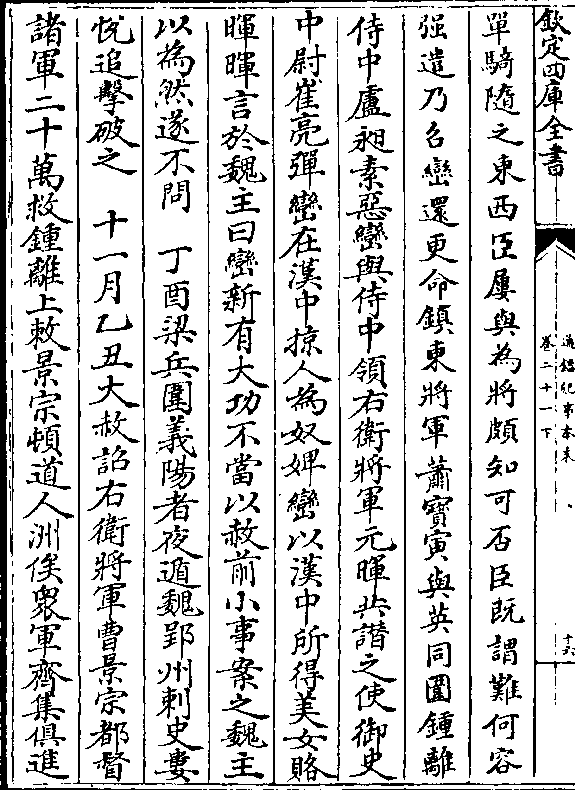 欽定四庫全書
通鑑紀事本末
卷二十一下
十六
單騎隨之東西臣屢與為將頗知可否臣既謂難何容
强遣乃召巒還更命鎮東將軍蕭寶寅與英同圍鍾離
侍中盧昶素惡巒與侍中領右衛將軍元暉共譖之使御史
中尉崔亮彈巒在漢中掠人為奴婢巒以漢中所得美女賂
暉暉言於魏主曰巒新有大功不當以赦前小事案之魏主
以為然遂不問 丁酉梁兵圍義陽者夜遁魏郢州刺史婁
悦追擊破之 十一月乙丑大赦詔右衛將軍曹景宗都督
諸軍二十萬救鍾離上敕景宗頓道人洲俟衆軍齊集俱進